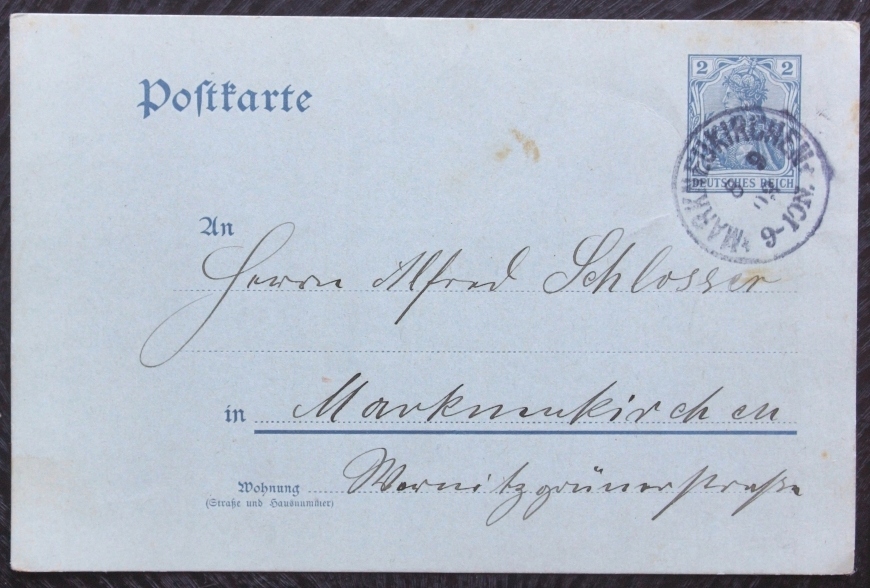 Postkarte
2 2
DEUTSCHES REICH
MARKNEUKIRCHEN
8 9
9-10N.
An
Herrn Alfred Schlosser
in Markneukirchen
Wohnung Wernitzgrünerstraße
(Straße und Hausnummer)